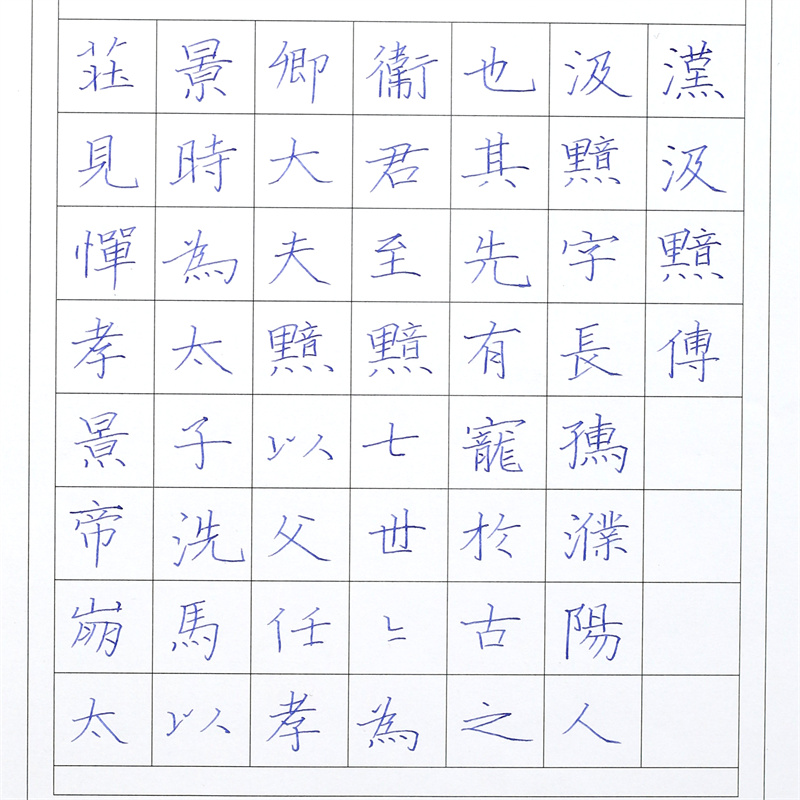 漢汲黯傳
汲黯字長孺濮陽人
也其先有寵於古之
衞君至黯七世〻為
卿大夫黯以父任孝
景時為太子洗馬以
莊見憚孝景帝崩太